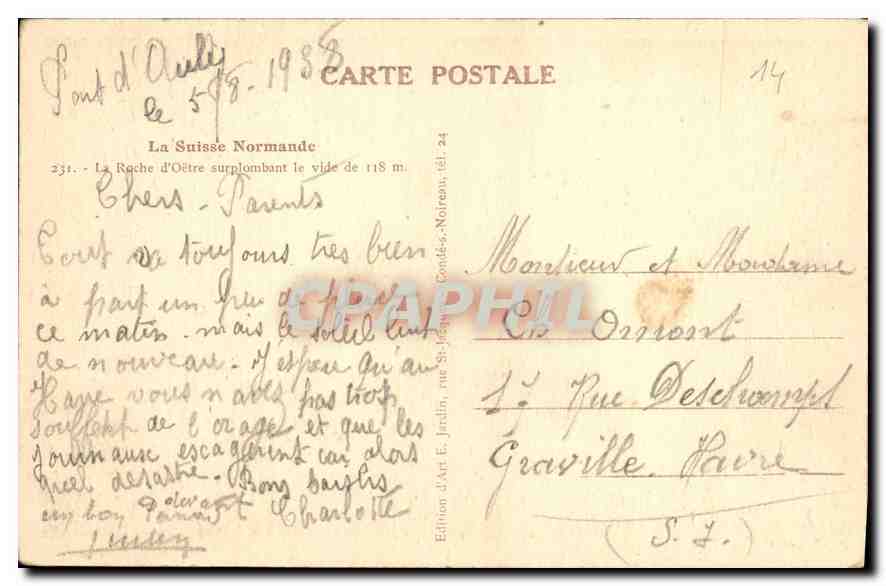 Pont d'Ouilly
le 5/8. 1938
CARTE POSTALE
14
La Suisse Normande
231. - La Roche d'Oëtre surplombant le vide de 118 m.
Chers Parents
Tout va toujours très bien
à part un peu de pluie
ce matin. mais le soleil luit
de nouveau. J'espère qu'au
Havre vous n'avez pas trop
souffert de l'orage et que les
journaux exagèrent car alors
quel désastre. Bons baisers
un bon Charlotte
Edition d'Art E. Jardin, rue St-Jacques, Condé-s.-Noireau, tél. 24
Monsieur et Madame
Ch Omont
17 Rue Deschamps
Graville Havre
(S. I.)
CPAPHIL